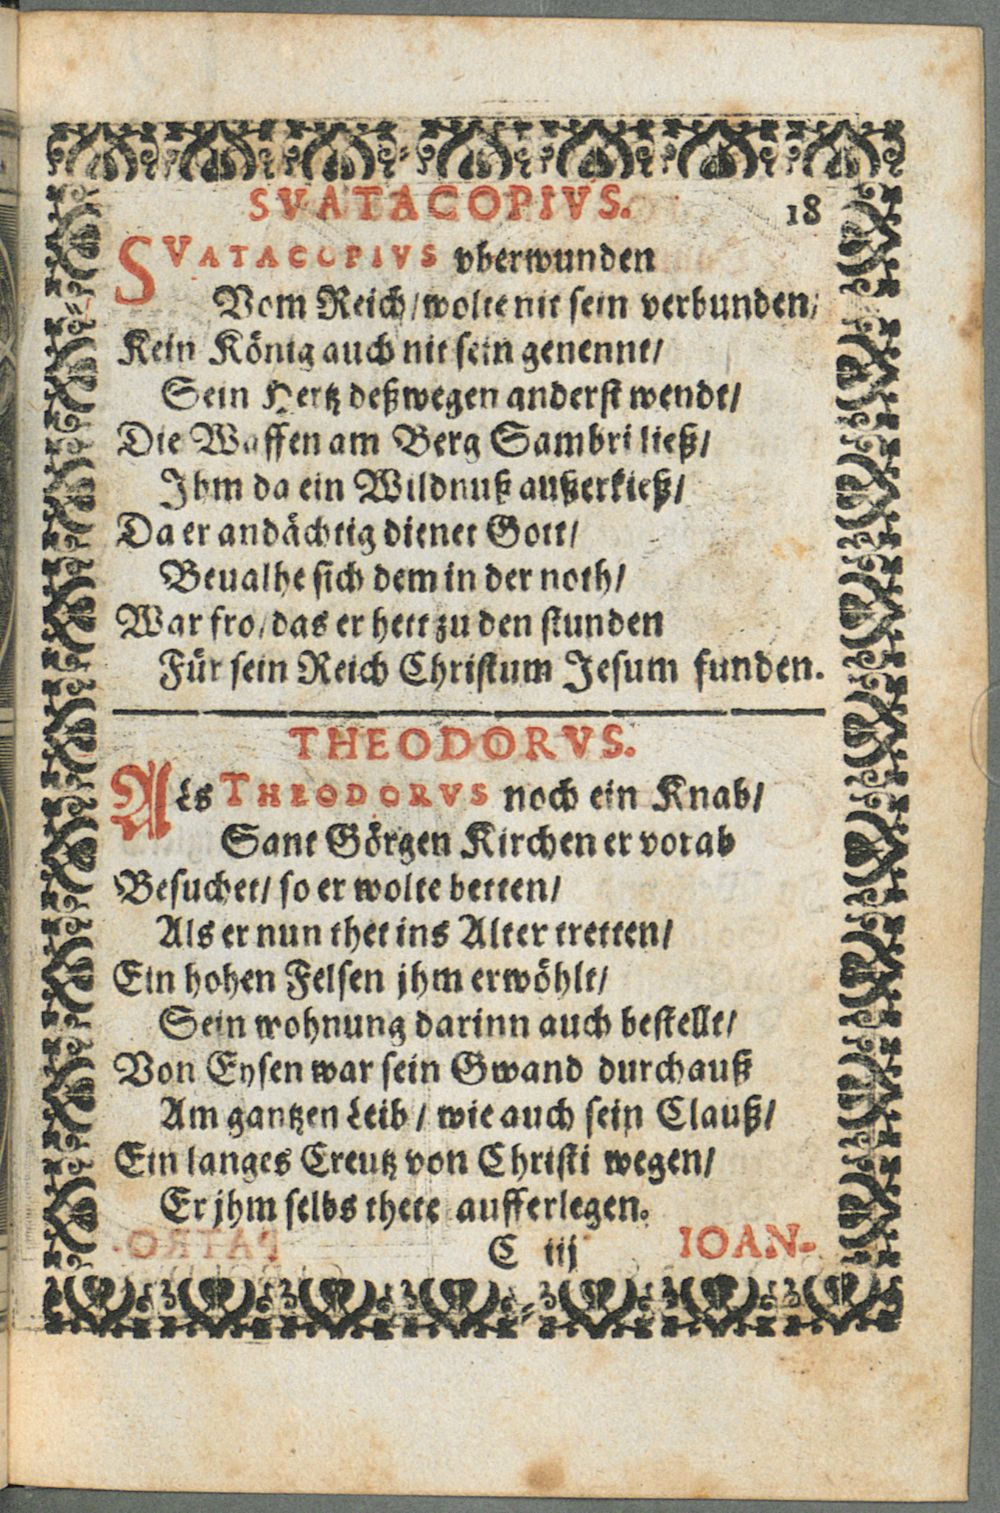 SVATACOPIVS. 18
SVATACOPIVS vberwunden
Vom Reich/ wolte nit sein verbunden/
Kein König auch nit sein genennt/
Sein Hertz deßwegen anderst wendt/
Die Waffen am Berg Sambri ließ/
Ihm da ein Wildnuß außerkieß/
Da er andächtig dienet Gott/
Beualhe sich dem in der noth/
War fro/ das er hett zu den stunden
Für sein Reich Christum Jesum funden.
THEODORVS.
Als THEODORVS noch ein Knab/
Sant Görgen Kirchen er vorab
Besuchet/ so er wolte betten/
Als er nun thet ins Alter tretten/
Ein hohen Felsen jhm erwöhlt/
Sein wohnung darinn auch bestellt/
Von Eysen war sein Gwand durchauß
Am gantzen Leib/ wie auch sein Clauß/
Ein langes Creutz von Christi wegen/
Er jhm selbs thete aufferlegen.
C iij IOAN-